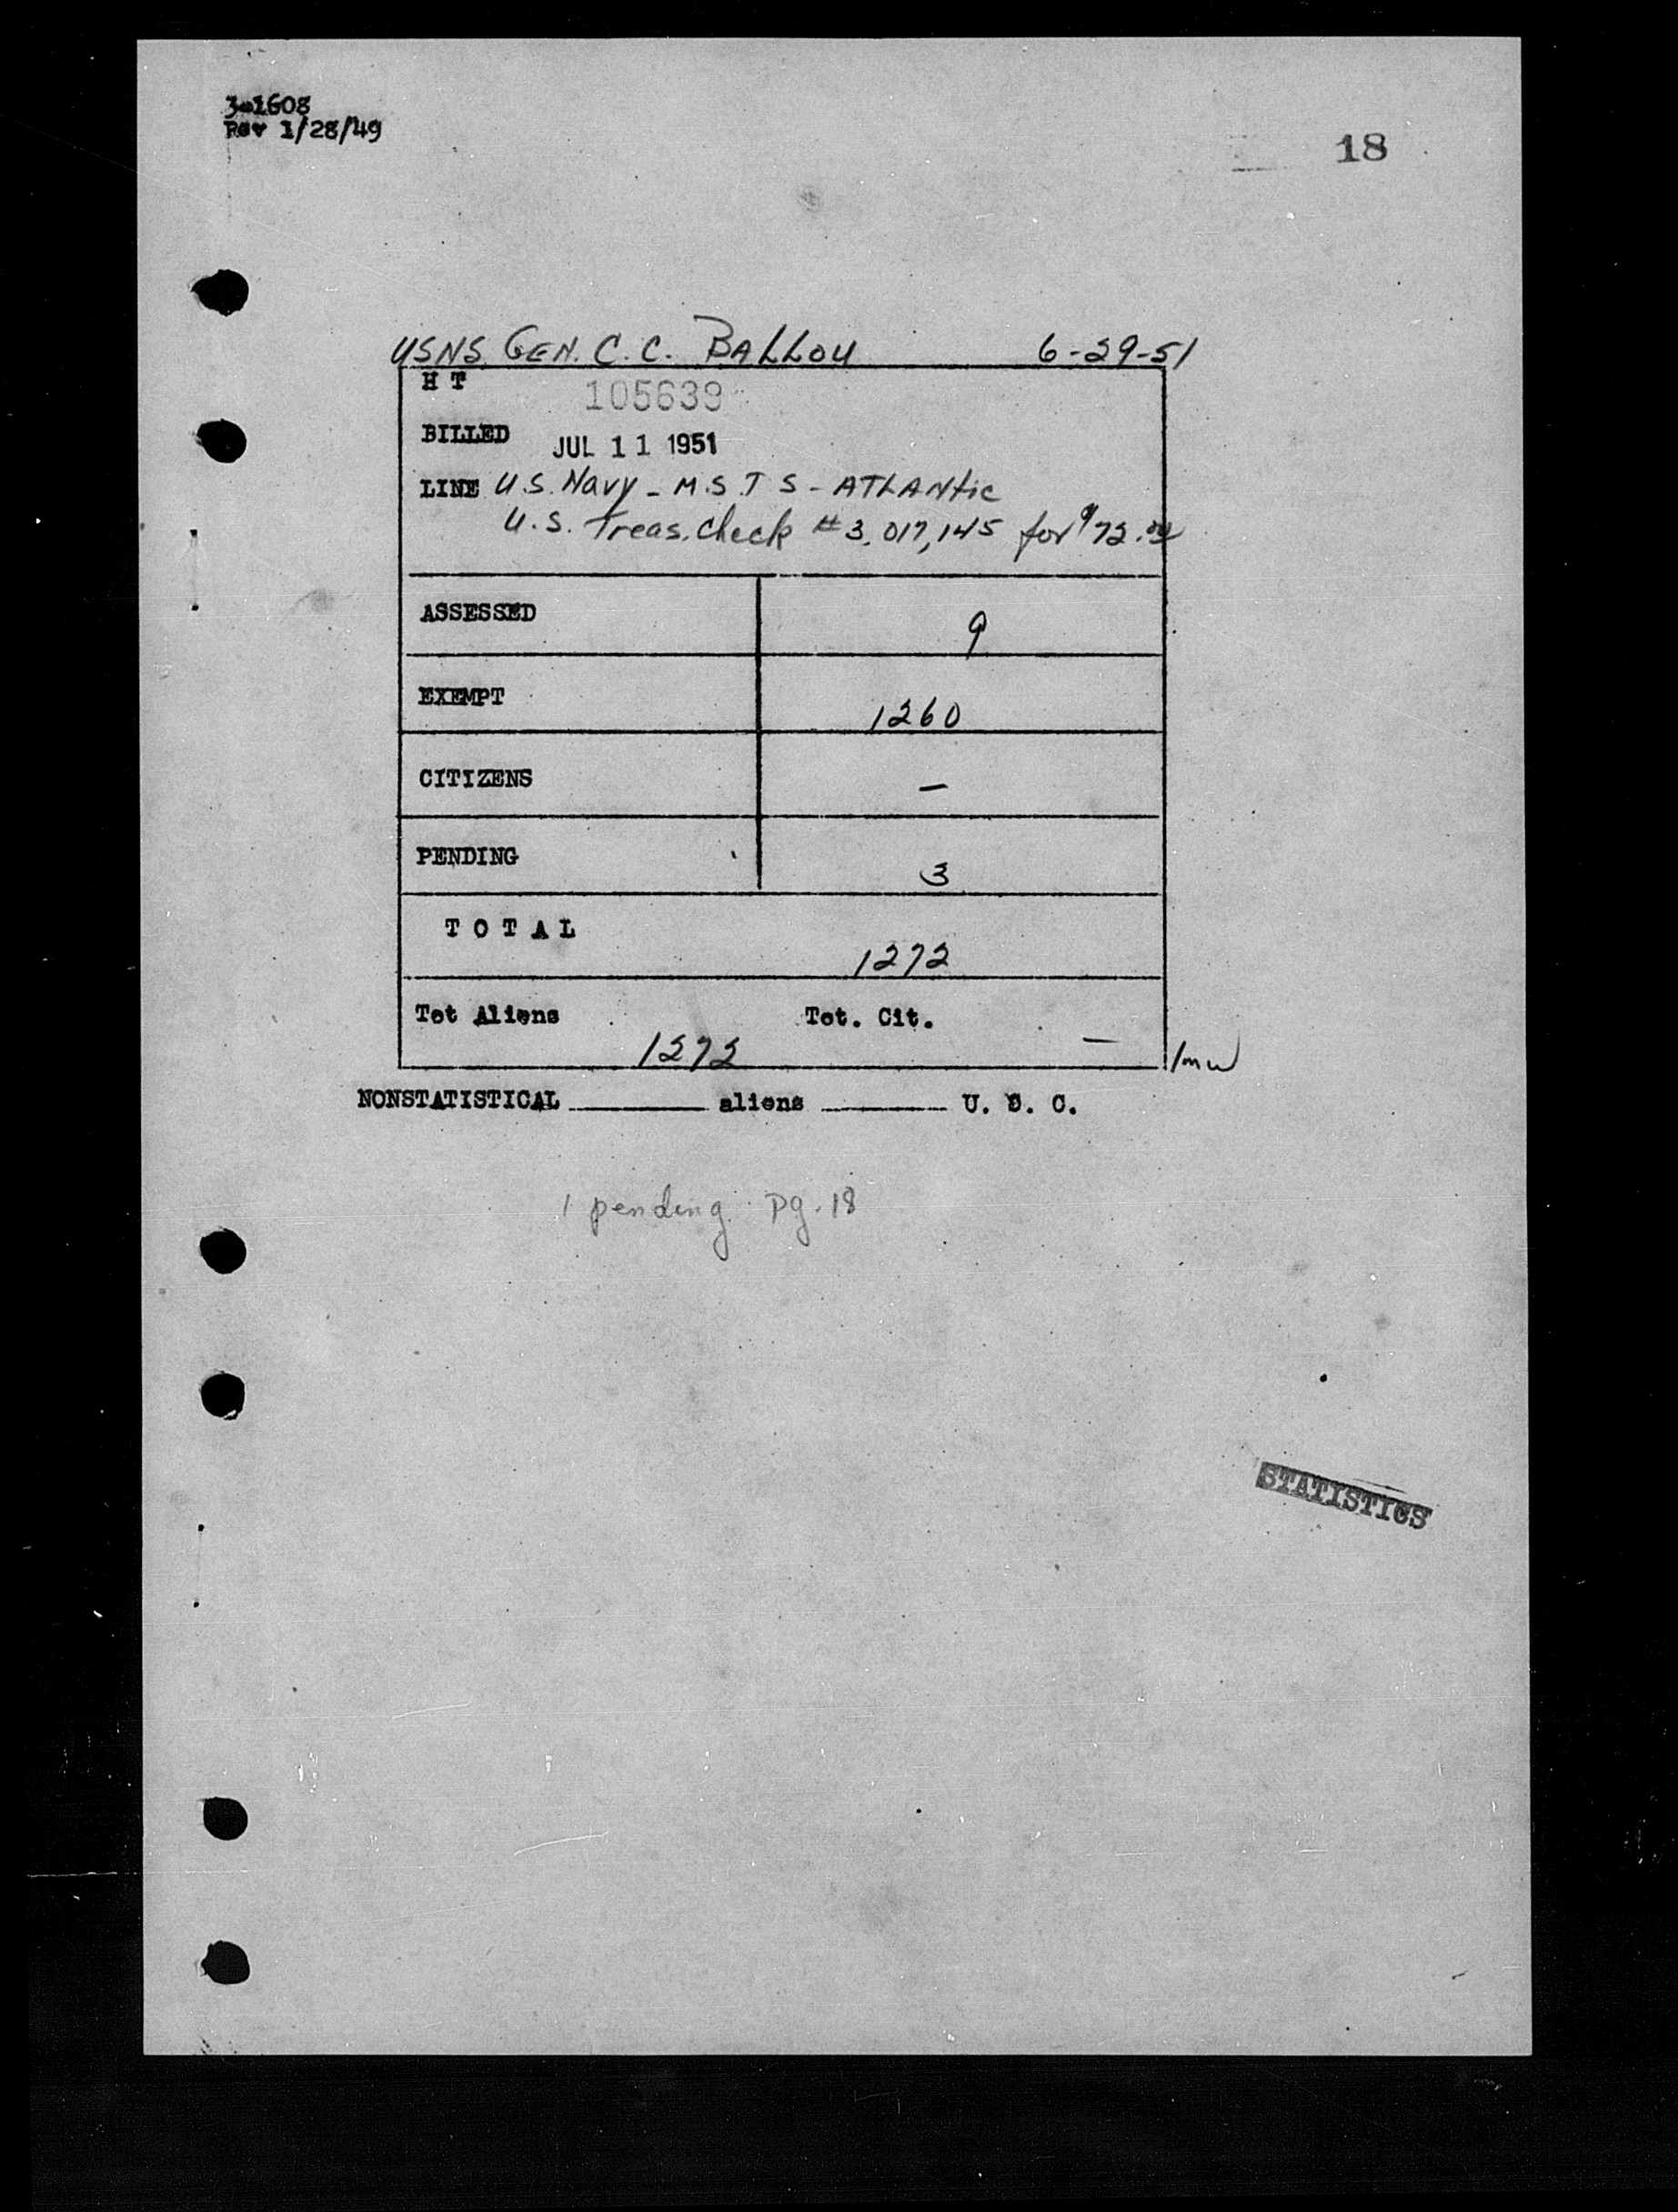 3-1608
Rev 1/28/49
18
USNS GEN. C. C. BALLOU 6-29-51
H T 105639
BILLED JUL 11 1951
LINE U.S. Navy - M.S.T S - ATLANtic
U.S. Treas. Check # 3,017,145 for $72.00
ASSESSED 9
EXEMPT 1260
CITIZENS —
PENDING 3
T O T A L 1272
Tot Aliens 1272 Tot. Cit. —
/mw
NONSTATISTICAL ______ aliens ______ U. S. C.
1 pending pg. 18
STATISTICS